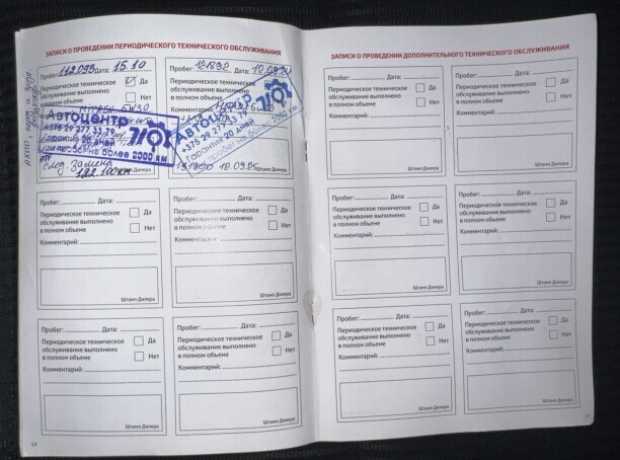 ЗАПИСИ О ПРОВЕДЕНИИ ПЕРИОДИЧЕСКОГО ТЕХНИЧЕСКОГО ОБСЛУЖИВАНИЯ
Пробег: 112.093 Дата: 15.10
Периодическое техническое
обслуживание выполнено
в полном объеме
Да
Нет
Автоцентр
+375 29 277 33 79
Гарантия 20 дней
пробег не более 2000 км
след. Замена
122.100км
Пробег: 121890 Дата:
Периодическое техническое
обслуживание выполнено
в полном объеме
Да
Нет
АВТОЦЕНТР
+375 29 277 33 79
Гарантия 20 дней
пробег не более 2000 км
Пробег: Дата:
Периодическое техническое
обслуживание выполнено
в полном объеме
Да
Нет
Комментарий:
Штамп Дилера
Пробег: Дата:
Периодическое техническое
обслуживание выполнено
в полном объеме
Да
Нет
Комментарий:
Штамп Дилера
Пробег: Дата:
Периодическое техническое
обслуживание выполнено
в полном объеме
Да
Нет
Комментарий:
Штамп Дилера
Пробег: Дата:
Периодическое техническое
обслуживание выполнено
в полном объеме
Да
Нет
Комментарий:
Штамп Дилера
ЗАПИСИ О ПРОВЕДЕНИИ ДОПОЛНИТЕЛЬНОГО ТЕХНИЧЕСКОГО ОБСЛУЖИВАНИЯ
Пробег: Дата:
Периодическое техническое
обслуживание выполнено
в полном объеме
Да
Нет
Комментарий:
Штамп Дилера
Пробег: Дата:
Периодическое техническое
обслуживание выполнено
в полном объеме
Да
Нет
Комментарий:
Штамп Дилера
Пробег: Дата:
Периодическое техническое
обслуживание выполнено
в полном объеме
Да
Нет
Комментарий:
Штамп Дилера
Пробег: Дата:
Периодическое техническое
обслуживание выполнено
в полном объеме
Да
Нет
Комментарий:
Штамп Дилера
Пробег: Дата:
Периодическое техническое
обслуживание выполнено
в полном объеме
Да
Нет
Комментарий:
Штамп Дилера
Пробег: Дата:
Периодическое техническое
обслуживание выполнено
в полном объеме
Да
Нет
Комментарий:
Штамп Дилера